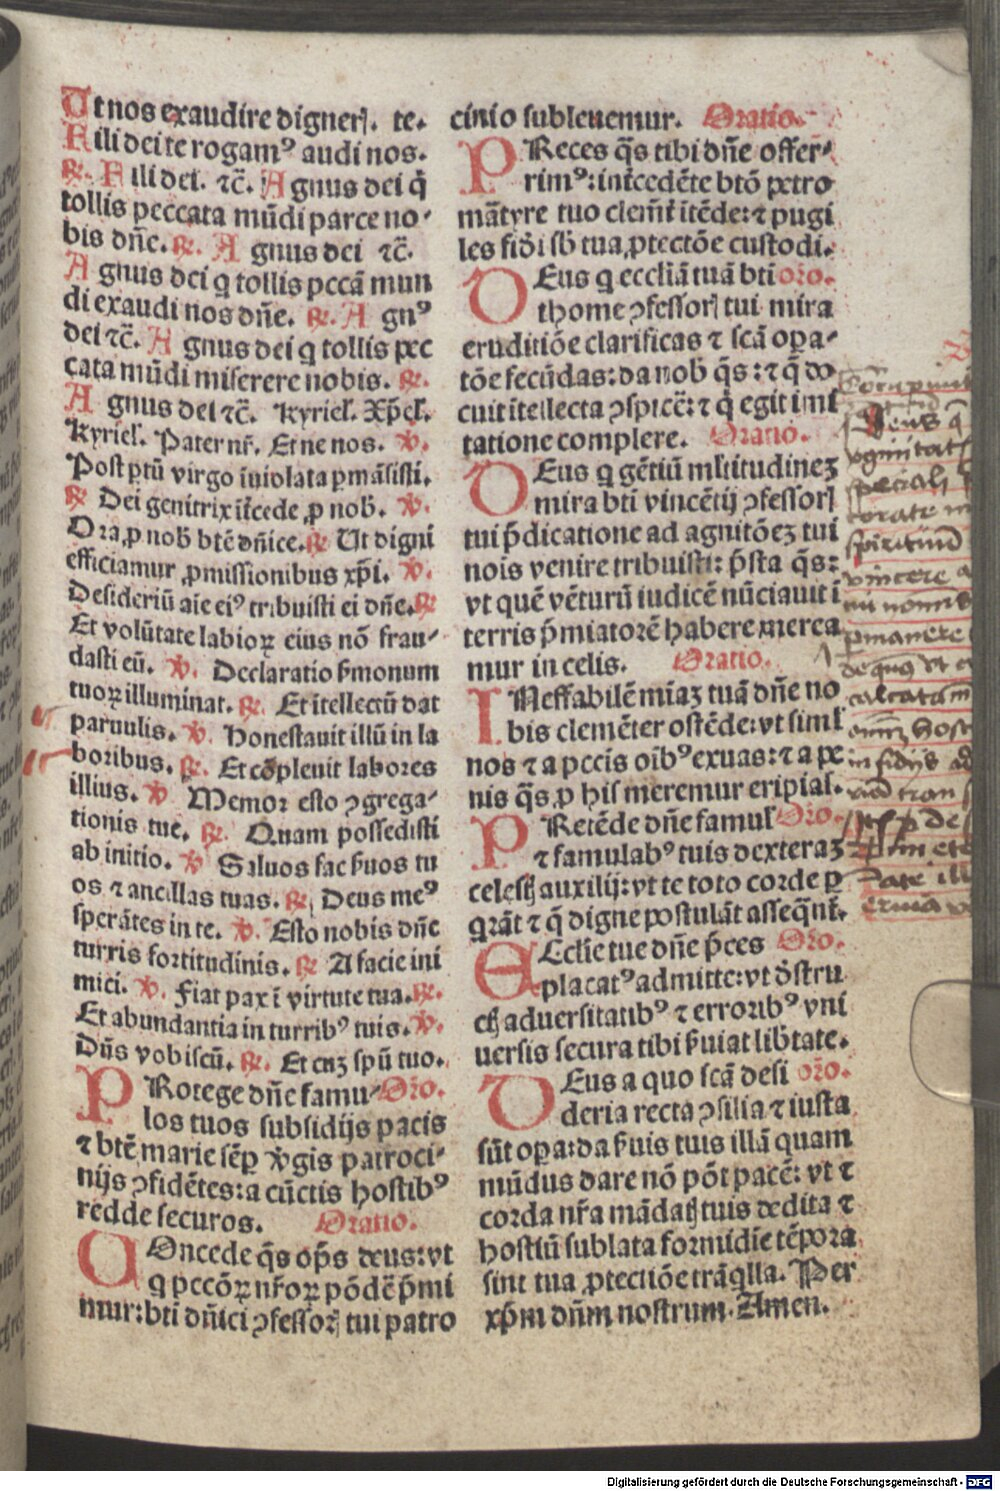 Ut nos exaudire digneris. te.
Fili dei te rogamꝰ audi nos.
℞. Fili dei. ⁊c̄. Agnus dei q̇
tollis peccata mūdi parce no-
bis dn̄e. ℞. Agnus dei ⁊c̄.
Agnus dei q tollis pccā mun
di exaudi nos dn̄e. ℞. A gnꝰ
dei ⁊c̄. Agnus dei q tollis pec
cata mūdi miserere nobis. ℞.
Agnus dei ⁊c̄. Kyriel. Xp̄el.
Kyriel. Pater nr̄. Et ne nos. ℣.
Post ptū virgo iuiolata pmāsisti.
℞ Dei genitrix īt̄cede ꝓ nob̄. ℣.
Ora ꝓ nob̄ btē dn̄ice. ℞ Ut digni
efficiamur ꝓmissionibus xp̄i. ℣.
Desideriū aīe eiꝰ tribuisti ei dn̄e. ℞
Et volūtate labioꝝ eius nō frau-
dasti eū. ℣. Declaratio ẜmonum
tuoꝝ illuminat. ℞. Et ītellectū dat
paruulis. ℣. Honestauit illū in la
boribus. ℞. Et cōpleuit labores
illius. ℣ Memor esto ꝯgrega-
tionis tue. ℞. Quam possedisti
ab initio. ℣ Saluos fac ẜuos tu
os ⁊ ancillas tuas. ℞. Deus meꝰ
sperātes in te. ℣. Esto nobis dn̄e
turris fortitudinis. ℞ A facie ini
mici. ℣. Fiat pax ī virtute tua. ℞.
Et abundantia in turribꝰ tuis. ℣.
Dn̄s vobiscū. ℞. Et cuꝫ spū tuo.
PRotege dn̄e famu- Oro.
los tuos subsidijs pacis
⁊ btē marie sēꝑ v̇gis patroci-
nijs ꝯfidētes: a cūctis hostibꝰ
redde securos. Oratio.
COncede q̄s op̄s deus: vt
q pccōꝝ nr̄oꝝ pōdē p̄mi
mur: bti dn̄ici ꝯfessoꝝ tui patro
cinio subleuemur. Oratio.
PReces q̄s tibi dn̄e offer-
rimꝰ: int̄cedēte btō petro
mārtyre tuo clemt̄ ītēde: ⁊ pugi
les fidi sb̄ tua ꝓtectōe custodi.
DEus q eccliā tuā bti oro.
thome ꝯfessorꝭ tui mira
eruditiōe clarificas ⁊ scā opa-
tōe fecūdas: da nob̄ q̄s: ⁊ q̄ do
cuit ītellecta ꝯspicē: ⁊ q̄ egit imi
tatione complere. Oratio.
DEus q gētiū mltitudineꝫ
mira bti vincētij ꝯfessorꝭ
tui p̄dicatione ad agnitōeꝫ tui
nois venire tribuisti: p̄sta q̄s:
vt quē vēturū iudicē nūciauit ī
terris p̄miatorē habere merea
mur in celis. Oratio.
INeffabilē miaꝫ tuā dn̄e no
bis clemēter ostēde: vt siml
nos ⁊ a pccis oībꝰ exuas: ⁊ a pe
nis q̄s ꝓ his meremur eripias.
PRetēde dn̄e famul Oro.
⁊ famulabꝰ tuis dexteraꝫ
celestꝭ auxilij: vt te toto corde ꝑ
qrāt ⁊ q̄ digne postulāt asseq̄nt̄.
ECclie tue dn̄e p̄ces Oro.
placatꝰ admitte: vt dr̄stru
ctꝭ aduersitatibꝰ ⁊ erroribꝰ vni
uersis secura tibi ẜuiat lib̄tate.
DEus a quo scā desi oro.
deria recta ꝯsilia ⁊ iusta
sūt opa: da ẜuis tuis illā quam
mūdus dare nō pōt pacē: vt ⁊
corda nr̄a mādatꝭ tuis dedita ⁊
hostiū sublata formidīe tēpora
sint tua ꝓtectiōe trāqlla. Per
xp̄m dn̄m nostrum. Amen.
Deus q̄
speciali
spiritūm
vincere
permanere
de quo vt
insidijs ad
Digitalisierung gefördert durch die Deutsche Forschungsgemeinschaft - DFG